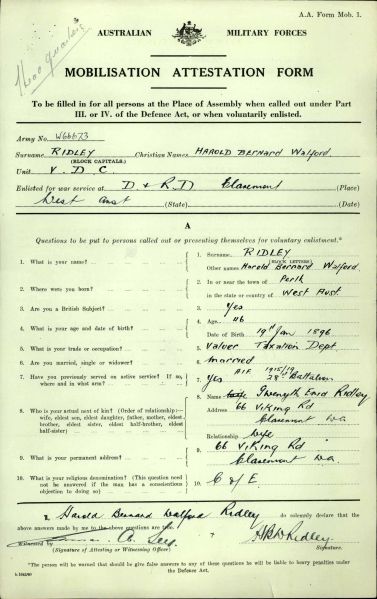 A.A. Form Mob. 1.
Headquarters
AUSTRALIAN MILITARY FORCES
MOBILISATION ATTESTATION FORM
To be filled in for all persons at the Place of Assembly when called out under Part
III. or IV. of the Defence Act, or when voluntarily enlisted.
Army No. W66673
Surname RIDLEY Christian Names HAROLD BERNARD Walford
(BLOCK CAPITALS.)
Unit V. D. C.
Enlisted for war service at D & R D Claremont (Place)
West Aust (State) (Date)
A
Questions to be put to persons called out or presenting themselves for voluntary enlistment.*
1. What is your name? 1. Surname RIDLEY
(BLOCK LETTERS)
Other names Harold Bernard Walford.
2. Where were you born? 2. In or near the town of Perth
in the state or country of West Aust.
3. Are you a British Subject? 3. Yes
4. What is your age and date of birth? 4. Age 46
Date of Birth 19th Jan 1896
5. What is your trade or occupation? 5. Valuer Taxation Dept
6. Are you married, single or widower? 6. Married
7. Have you previously served on active service? If so, where and in what arm? 7. Yes A.I.F. 1915/19 28th Battalion
8. Who is your actual next of kin? (Order of relationship—
wife, eldest son, eldest daughter, father, mother, eldest
brother, eldest sister, eldest half-brother, eldest
half-sister)
8. Name Gwenyth Enid Ridley
Address 66 Viking Rd
Claremont WA
Relationship wife
9. What is your permanent address? 9. 66 Viking Rd
Claremont WA
10. What is your religious denomination? (This question need
not be answered if the man has a conscientious
objection to doing so)
10. C of E.
I, Harold Bernard Walford Ridley do solemnly declare that the
above answers made by me to the above questions are true.
Witnessed by
(Signature of Attesting or Witnessing Officer)
HBWRidley
Signature.
*The person will be warned that should he give false answers to any of these questions he will be liable to heavy penalties under
the Defence Act.